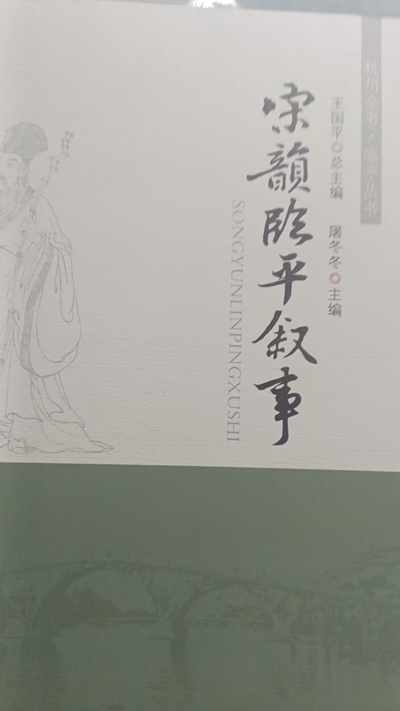 杭州全书·临平丛书
王国平 总主编 屠冬冬 主编
宋韻臨平叙事
SONGYUNLINPINGXUSHI